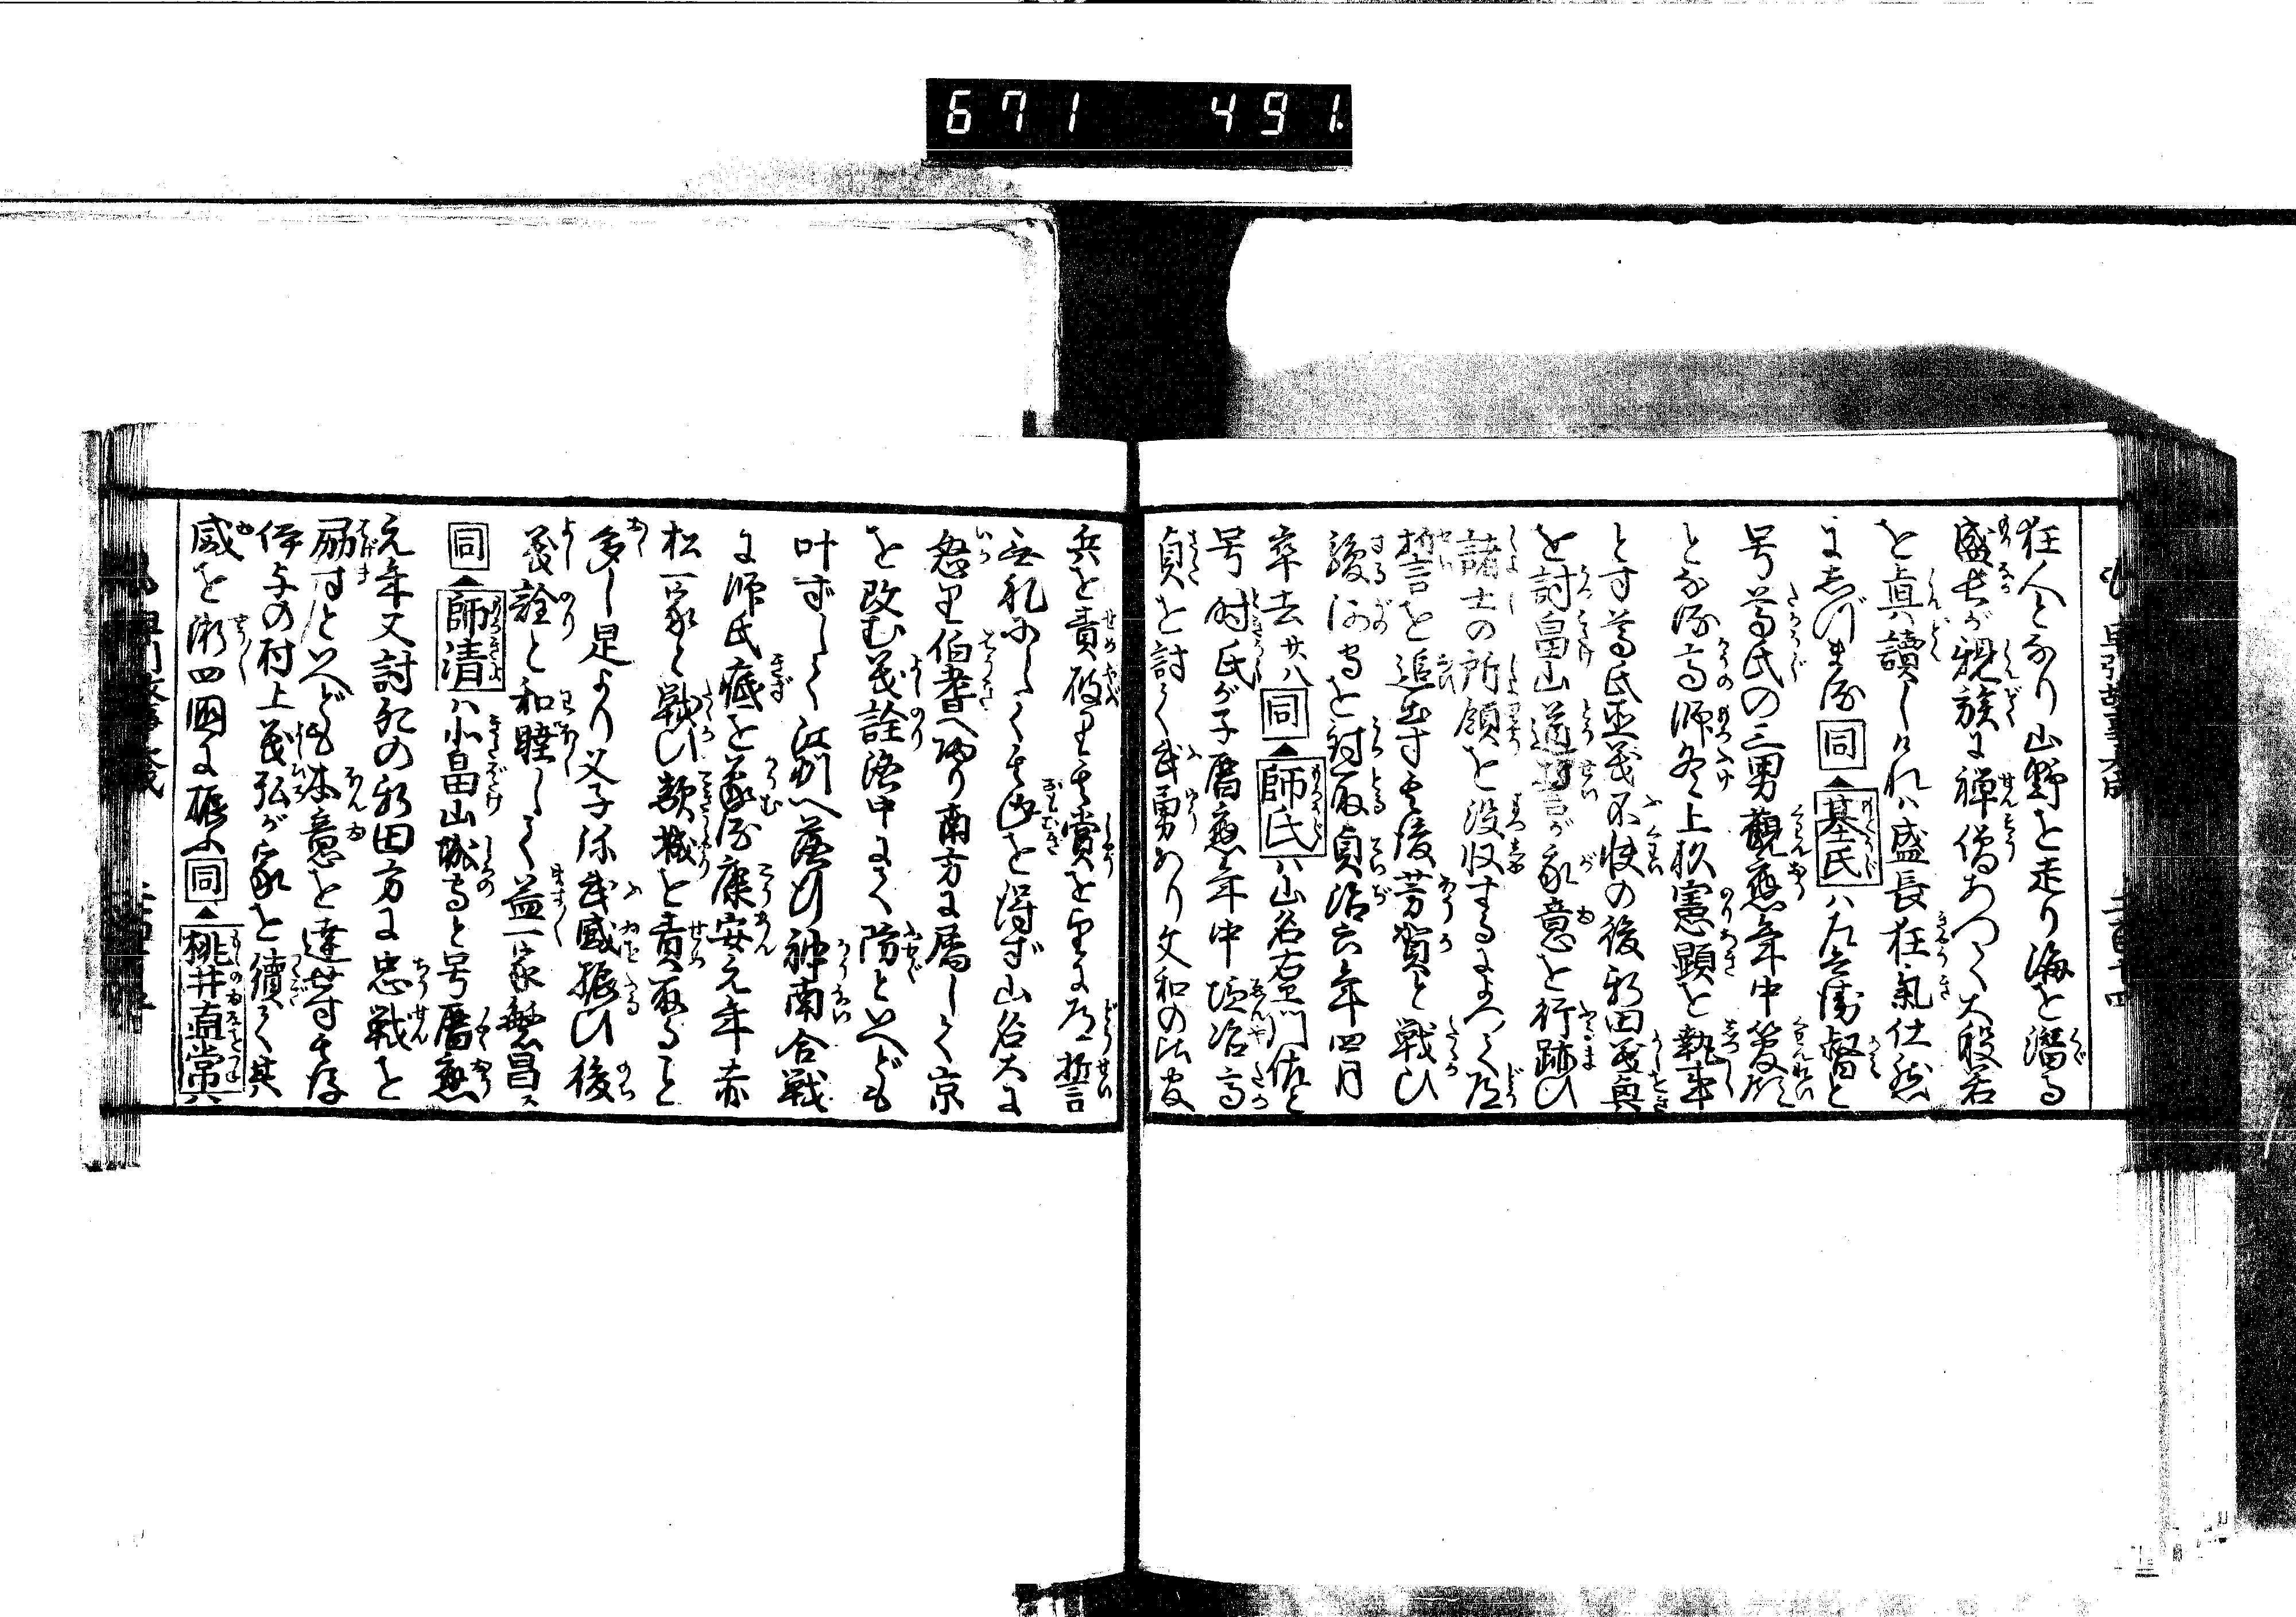 671 491
狂人となり山野を走り海を潜る
盛長が親族に禅僧あつて大般若
を真読しければ盛長狂氣仕然
にしづまる 同 基氏ハ左兵衛督と
号尊氏の三男觀應年中管領
となる高師冬上杦憲顕を執事
とす尊氏直義不快の後新田義興
を討畠山道誓が家意を行跡ひ
諸士の所領を没収するによつて道
誓を追出す其後芳賀と戦ひ
駿河守を討取貞治六年四月
卒去廿八 同 師氏ハ山名右衛門佐と
号時氏が子暦應年中塩冶高
貞を討て武勇あり文和の比安
兵を責破り其賞を望に道誓
無礼にして其趣を得ず山名大に
怒り伯耆へ帰り南方に属して京
を改む義詮洛中にて防といへども
叶ずして江州へ落行神南合戦
に師氏疵を蒙る康安元年赤
松一家と戦ひ数城を責取ること
多し是より父子弥武威振ひ後
義詮と和睦して益一家繁昌ス
同 師清ハ小畠山城守と号暦應
元年父討死の新田方に忠戦を
励すといへども本意を達せず其後
伊与の村上義弘が家を續て其
威を漸四國に振ふ 同 桃井直常ハ